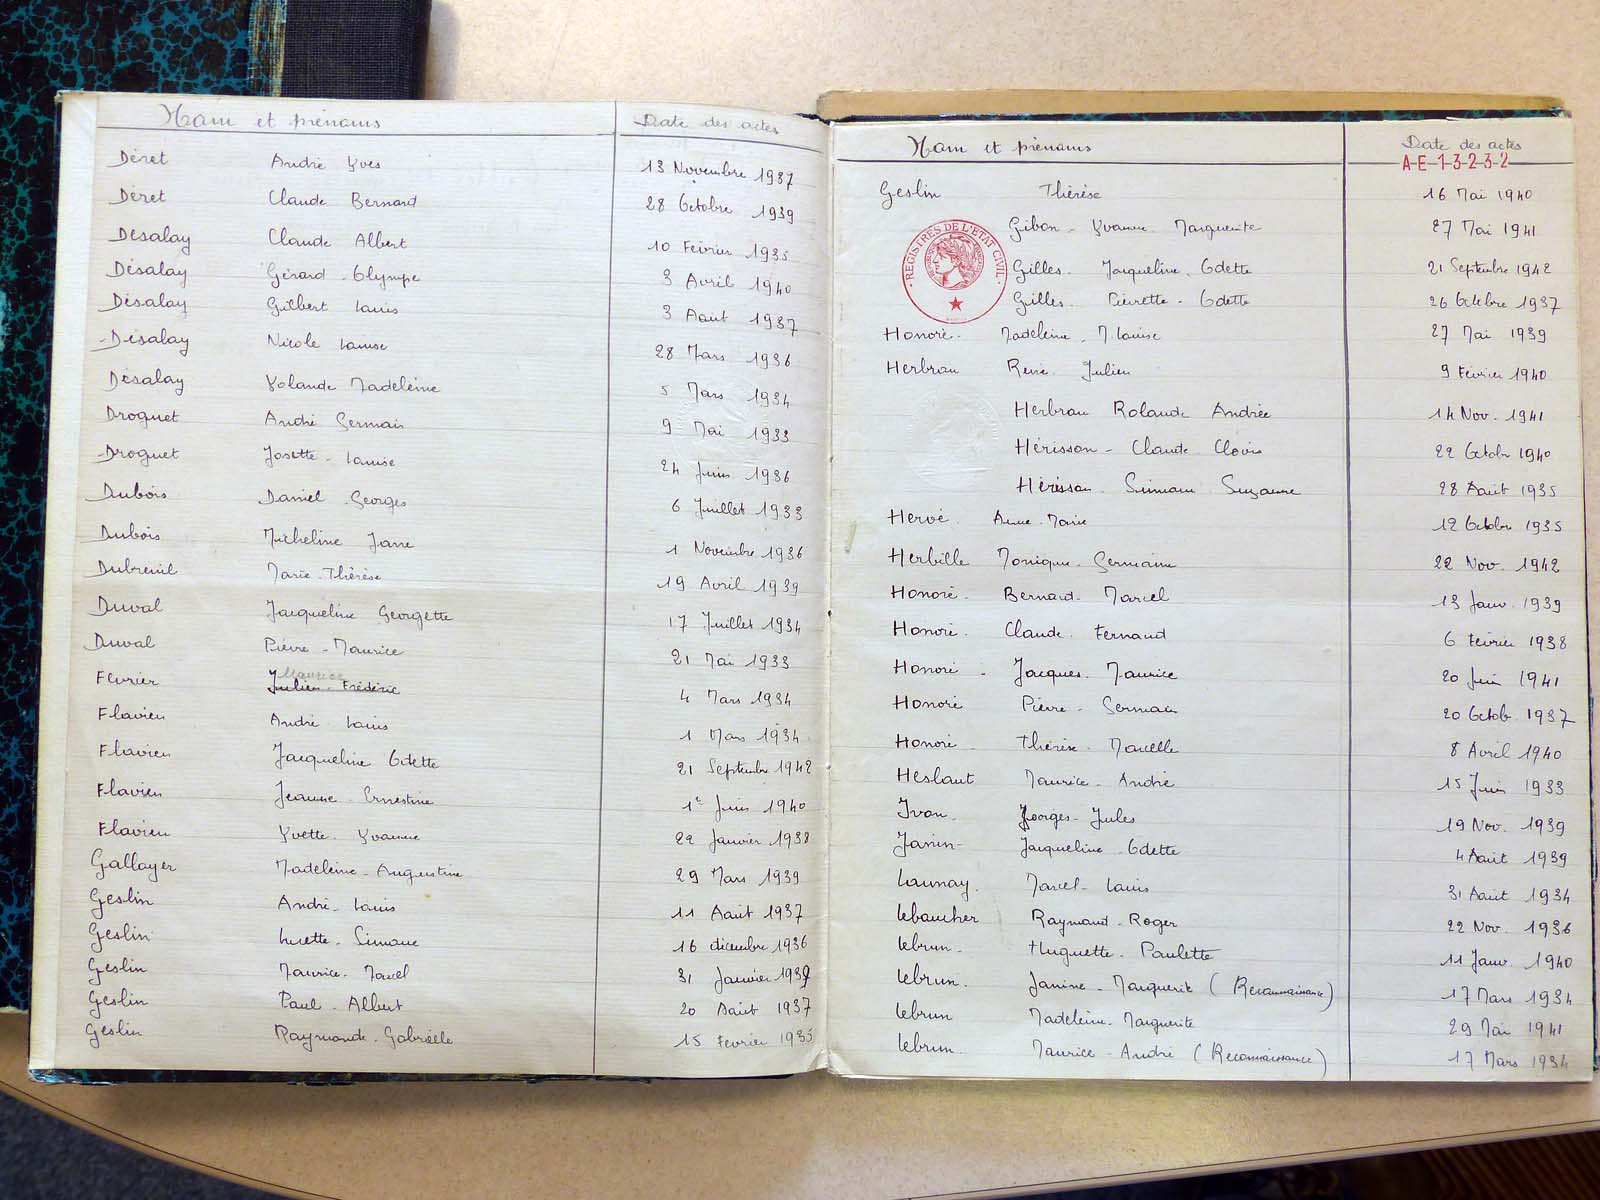 Nom et prénoms Date des actes
Déret André Yves 13 Novembre 1937
Déret Claude Bernard 28 Octobre 1939
Désalay Claude Albert 10 Février 1935
Désalay Gérard - Olympe 3 Avril 1940
Désalay Gilbert Louis 3 Août 1937
Désalay Nicole Louise 28 Mars 1936
Désalay Yolande Madeleine 5 Mars 1934
Droguet André Germain 9 Mai 1933
Droguet Josette - Louise 24 Juin 1936
Dubois Daniel Georges 6 Juillet 1933
Dubois Micheline Jane 1 Novembre 1936
Dubreuil Marie-Thérèse 19 Avril 1939
Duval Jacqueline Georgette 17 Juillet 1934
Duval Pierre - Maurice 21 Mai 1933
Maurice
Février Julien Frédéric 4 Mars 1934
Flavien André Louis 1 Mars 1934
Flavien Jacqueline Odette 21 Septembre 1942
Flavien Jeanne - Ernestine 1e Juin 1940
Flavien Yvette - Yvonne 22 Janvier 1938
Gallayer Madeleine - Augustine 29 Mars 1939
Geslin André - Louis 11 Août 1937
Geslin Lucette - Simone 16 décembre 1936
Geslin Maurice - Marcel 31 Janvier 1939
Geslin Paul - Albert 20 Août 1937
Geslin Raymonde - Gabrielle 15 Février 1935
Nom et prénoms Date des actes
A-E-1-3-2-3-2
Geslin Thérèse 16 Mai 1940
REGISTRES DE L'ETAT CIVIL
Gibon - Yvonne - Marguerite 27 Mai 1941
Gilles - Jacqueline - Odette 21 Septembre 1942
Gilles - Pierrette - Odette 26 Octobre 1937
Honoré - Madeleine - M. Louise 27 Mai 1939
Herbron René Julien 9 Février 1940
Herbron Rolande Andrée 14 Nov. 1941
Hérisson - Claude Clovis 22 Octobr 1940
Hérisson - Simone Suzanne 28 Août 1935
Hervé - Anne - Marie 12 Octobre 1935
Herbille Monique - Germaine 22 Nov. 1942
Honoré - Bernard - Marcel 13 Janv. 1939
Honoré - Claude - Fernand 6 Février 1938
Honoré - Jacques - Maurice 20 Juin 1941
Honoré Pierre - Germain 20 Octob. 1937
Honoré - Thérèse - Marcelle 8 Avril 1940
Heslaut Maurice - André 15 Juin 1933
Ivon - Georges - Jules 19 Nov. 1939
Janin - Jacqueline - Odette 4 Août 1939
Launay - Marcel - Louis 31 Août 1934
Lebaucher Raymond - Roger 22 Nov. 1936
Lebrun - Huguette - Paulette 11 Janv. 1940
Lebrun - Janine - Marguerite (Reconnaissance) 17 Mars 1934
Lebrun Madeleine - Marguerite 29 Mai 1941
Lebrun - Maurice - André (Reconnaissance) 17 Mars 1934